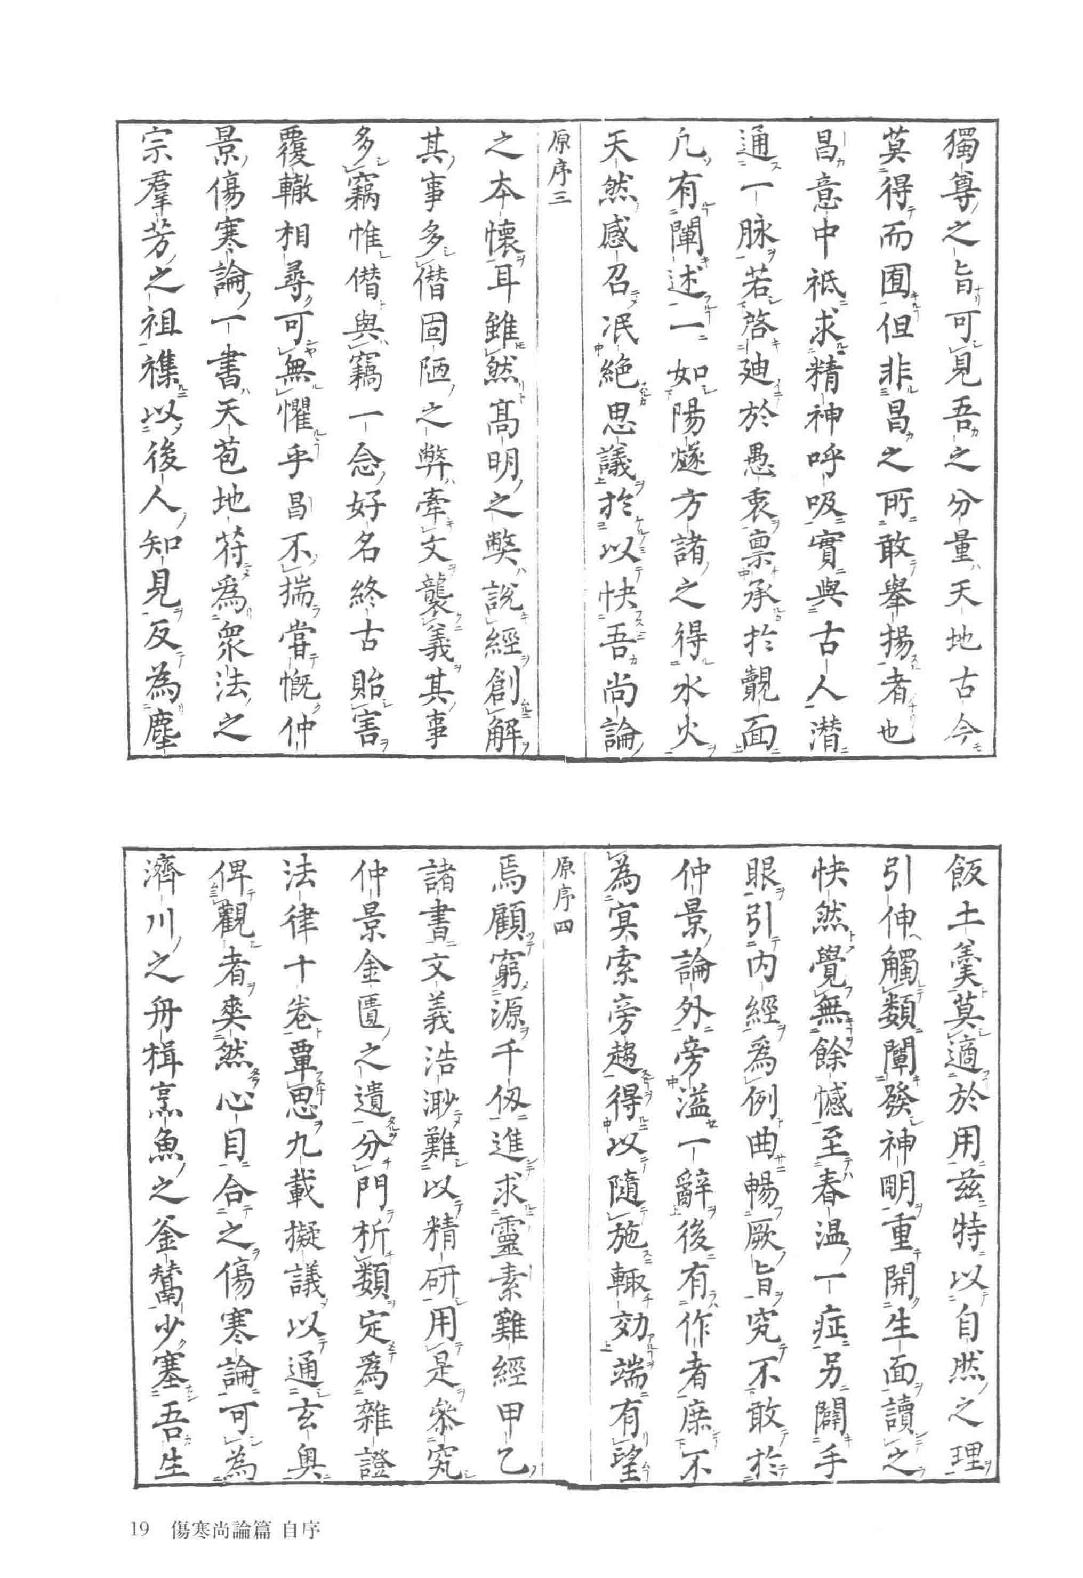 獨尊之旨可見吾之分量天地古今
莫得而囿但非昌之所敢舉揚者也
昌意中祇求精神呼吸實與古人潛
通一脉若啓廸於愚衷稟承於覿面
凢有闡述一一如陽燧方諸之得水火
天然感召冺絶思議於以快吾尚論
原序三
之本懷耳雖然高明之獘說經創解
其事多僭固陋之弊牽文襲義其事
多竊惟僭與竊一念好名終古貽害
覆轍相尋可無懼乎昌不揣嘗慨仲
景傷寒論一書天苞地符爲衆法之
宗羣芳之祖襍以後人知見反為塵
飯土羹莫適於用兹特以自然之理
引伸觸類闡發神明重開生面讀之
快然覺無餘憾至春温一症另闢手
眼引内經爲例曲暢厥旨究不敢於
仲景論外旁溢一辭後有作者庶不
為冥索旁趨得以隨施輙効端有望
原序四
焉顧窮源千仭進求靈素難經甲乙
諸書文義浩渺難以精研用是叅究
仲景金匱之遺分門析類定爲雜證
法律十卷覃思九載擬議以通玄奥
俾觀者爽然心目合之傷寒論可為
濟川之舟楫烹魚之釜鬵少塞吾生
19 傷寒尚論篇 自序